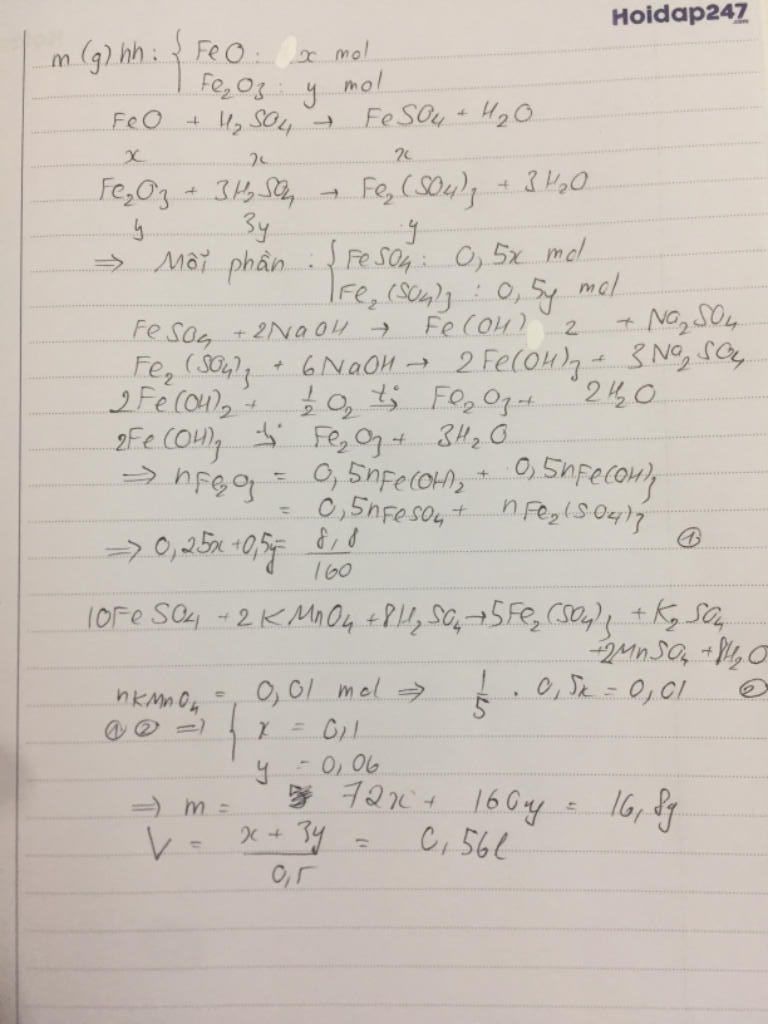 Hoidap247.com
m (g) hh : { FeO : x mol
Fe2O3 : y mol
FeO + H2SO4 → FeSO4 + H2O
x x x
Fe2O3 + 3H2SO4 → Fe2(SO4)3 + 3H2O
y 3y y
⇒ Mỗi phần : { FeSO4 : 0,5x mol
Fe2(SO4)3 : 0,5y mol
FeSO4 + 2NaOH → Fe(OH)2 + Na2SO4
Fe2(SO4)3 + 6NaOH → 2Fe(OH)3 + 3Na2SO4
2Fe(OH)2 + 1/2 O2 t°→ Fe2O3 + 2H2O
2Fe(OH)3 t°→ Fe2O3 + 3H2O
⇒ nFe2O3 = 0,5nFe(OH)2 + 0,5nFe(OH)3
= 0,5nFeSO4 + nFe2(SO4)3
⇒ 0,25x+0,5y= 8,8/160 ①
10FeSO4 + 2KMnO4 + 8H2SO4 → 5Fe2(SO4)3 + K2SO4
+2MnSO4 + 8H2O
nKMnO4 = 0,01 mol ⇒ 1/5 . 0,5x = 0,01 ②
① ② ⇒ { x = 0,1
y = 0,06
⇒ m = 72x + 160y = 16,8g
V = x + 3y / 0,5 = 0,56l